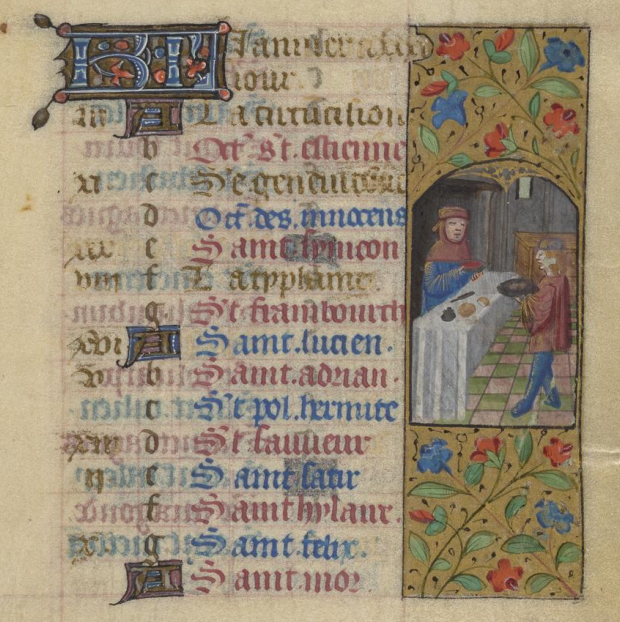 KL Januier a xxxi
iour
iii A La circucision
b Oct. st. estienne
xi c Ste geneuiefue
d Oct. des. innocens
xix e Saint symeon
viii f La typhaine
g St frambourch
xvi A Saint. lucien.
v b Saint. adrian.
c St pol. hermite
xiii d St sauueur
ii e Saint satir
f Saint hylaire.
g Saint. felix.
A Saint mor